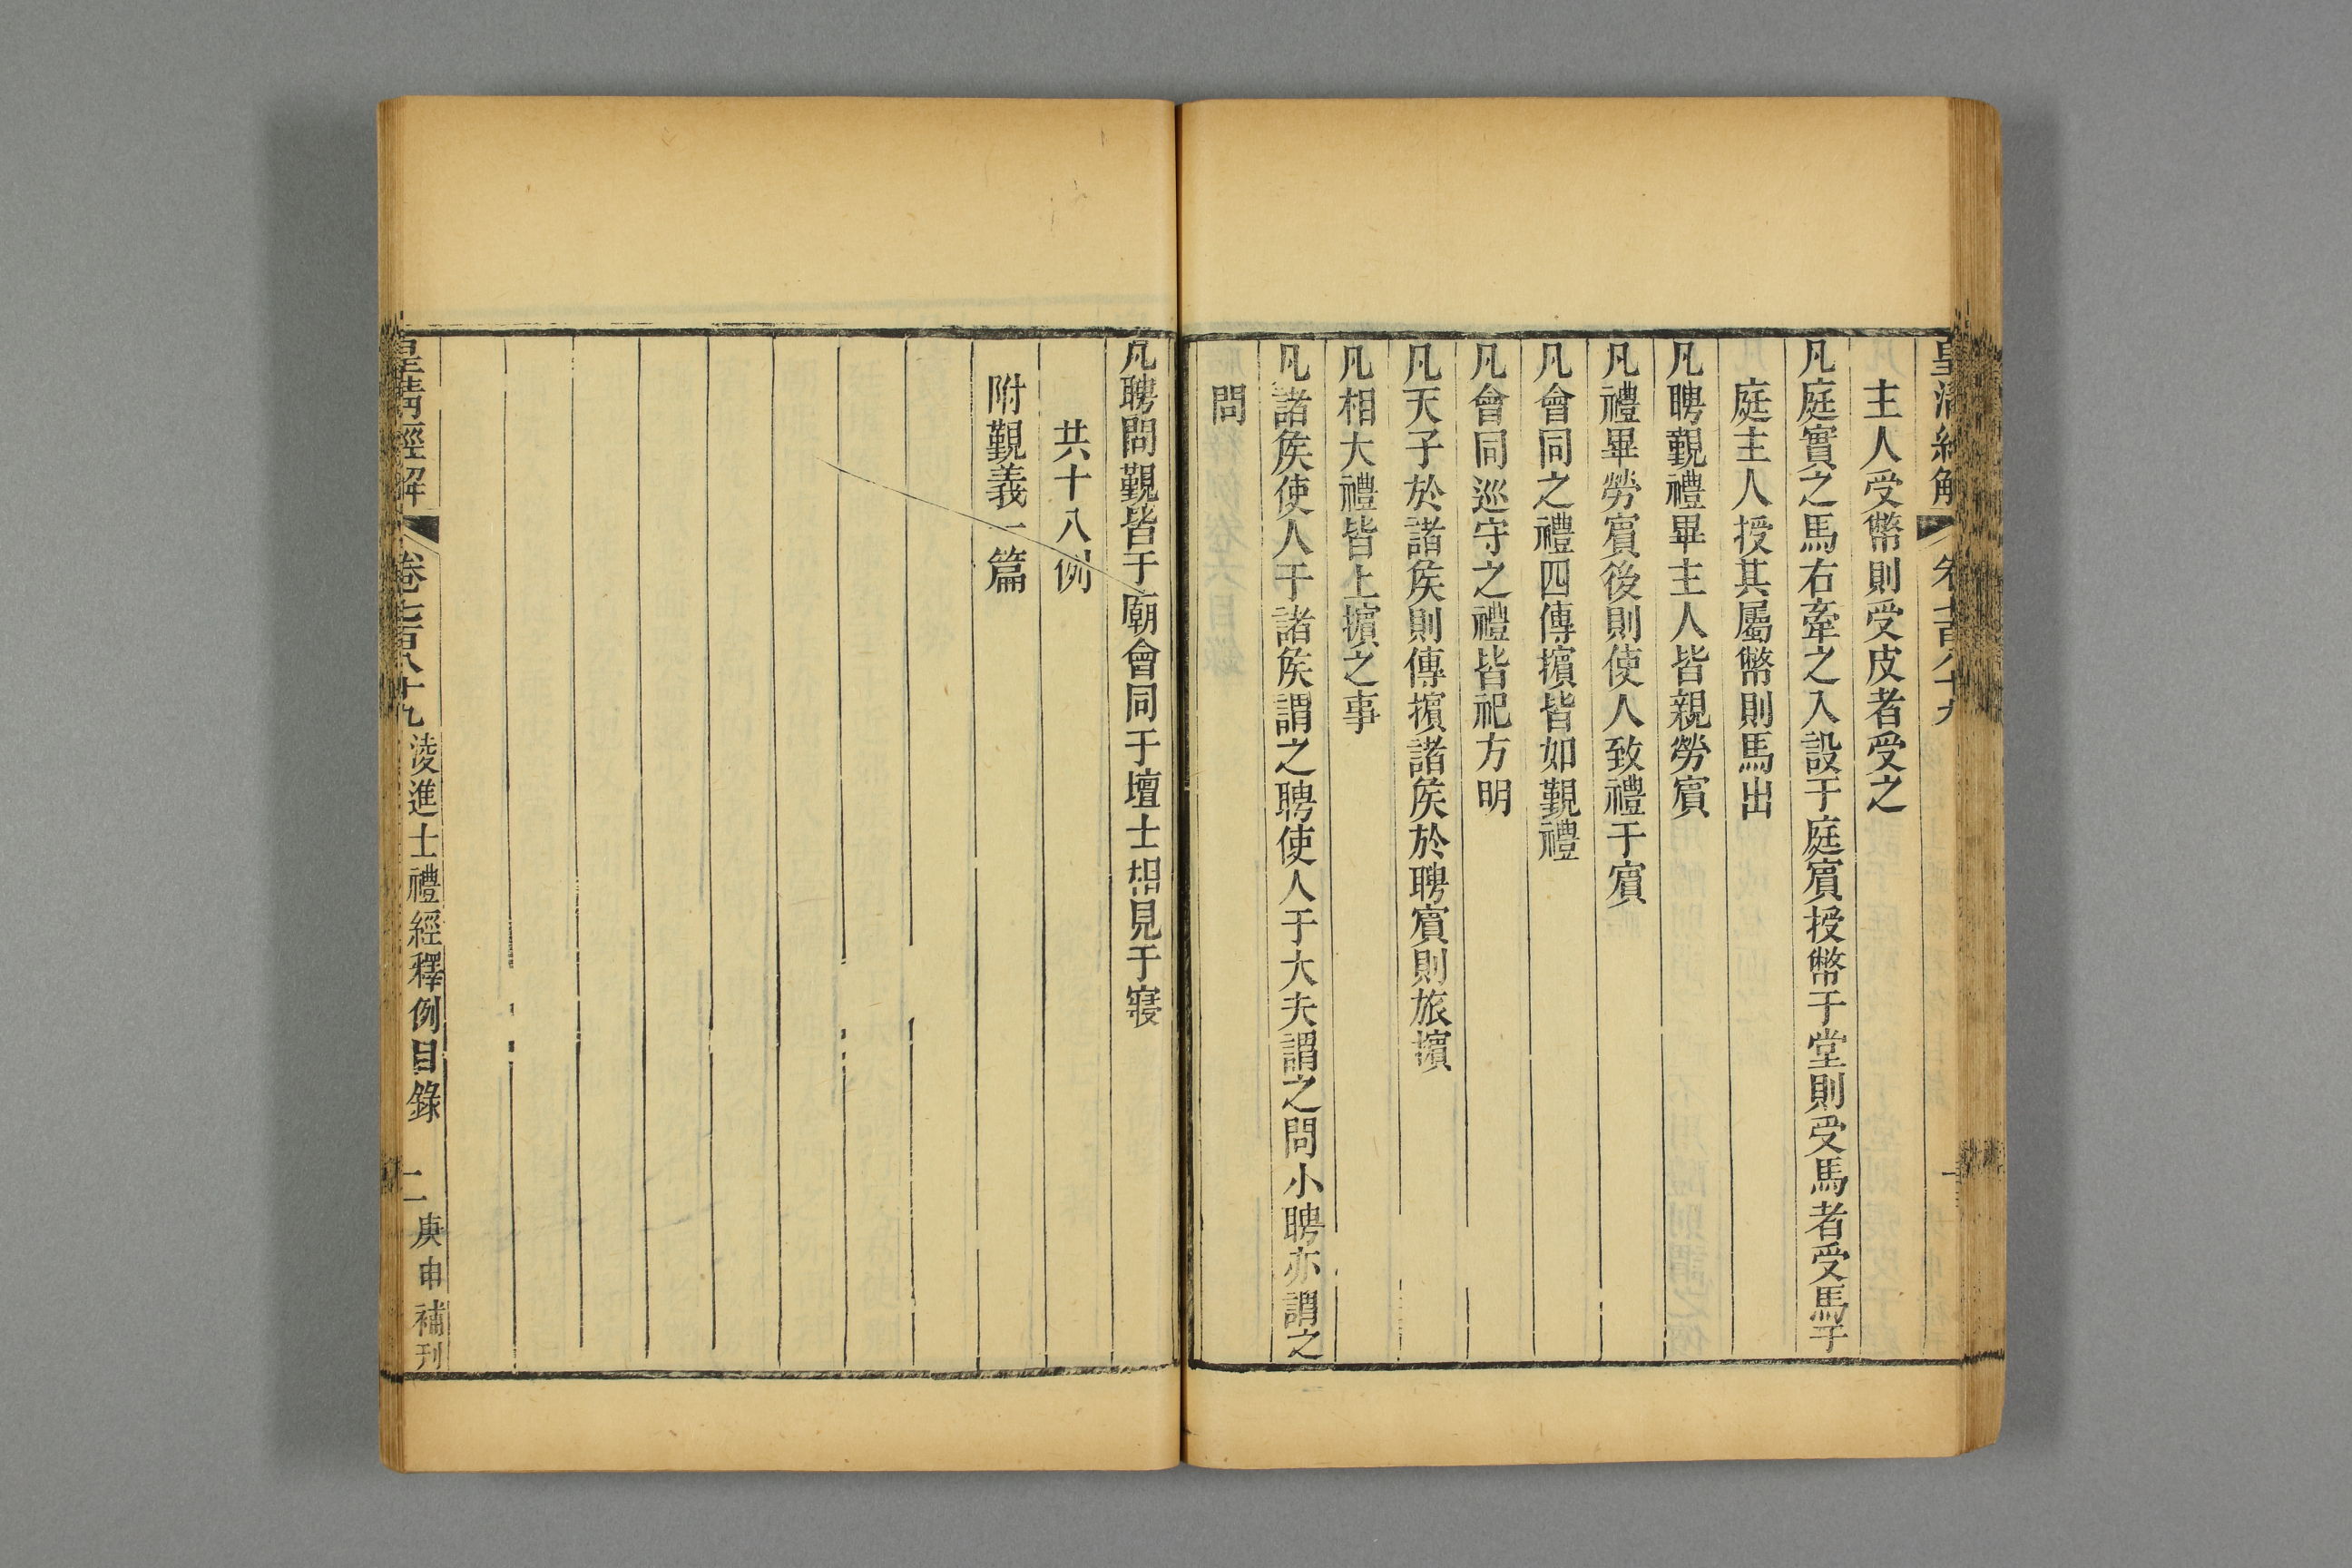 皇清經解 卷七百八十九
主人受幣則受皮者受之
凡庭實之馬右牽之入設于庭賔授幣于堂則受馬者受馬于
庭主人授其屬幣則馬出
凡聘覲禮畢主人皆親勞賔
凡禮畢勞賔後則使人致禮于賔
凡會同之禮四傳擯皆如覲禮
凡會同巡守之禮皆祀方明
凡天子於諸矦則傳擯諸矦於聘賔則旅擯
凡相大禮皆上擯之事
凡諸矦使人于諸矦謂之聘使人于大夫謂之問小聘亦謂之
問
凡聘問覲皆于廟會同于壇士相見于寢
共十八例
附覲義一篇
皇清經解 卷七百八十九 淩進士禮經釋例目錄 二 庚申補刊